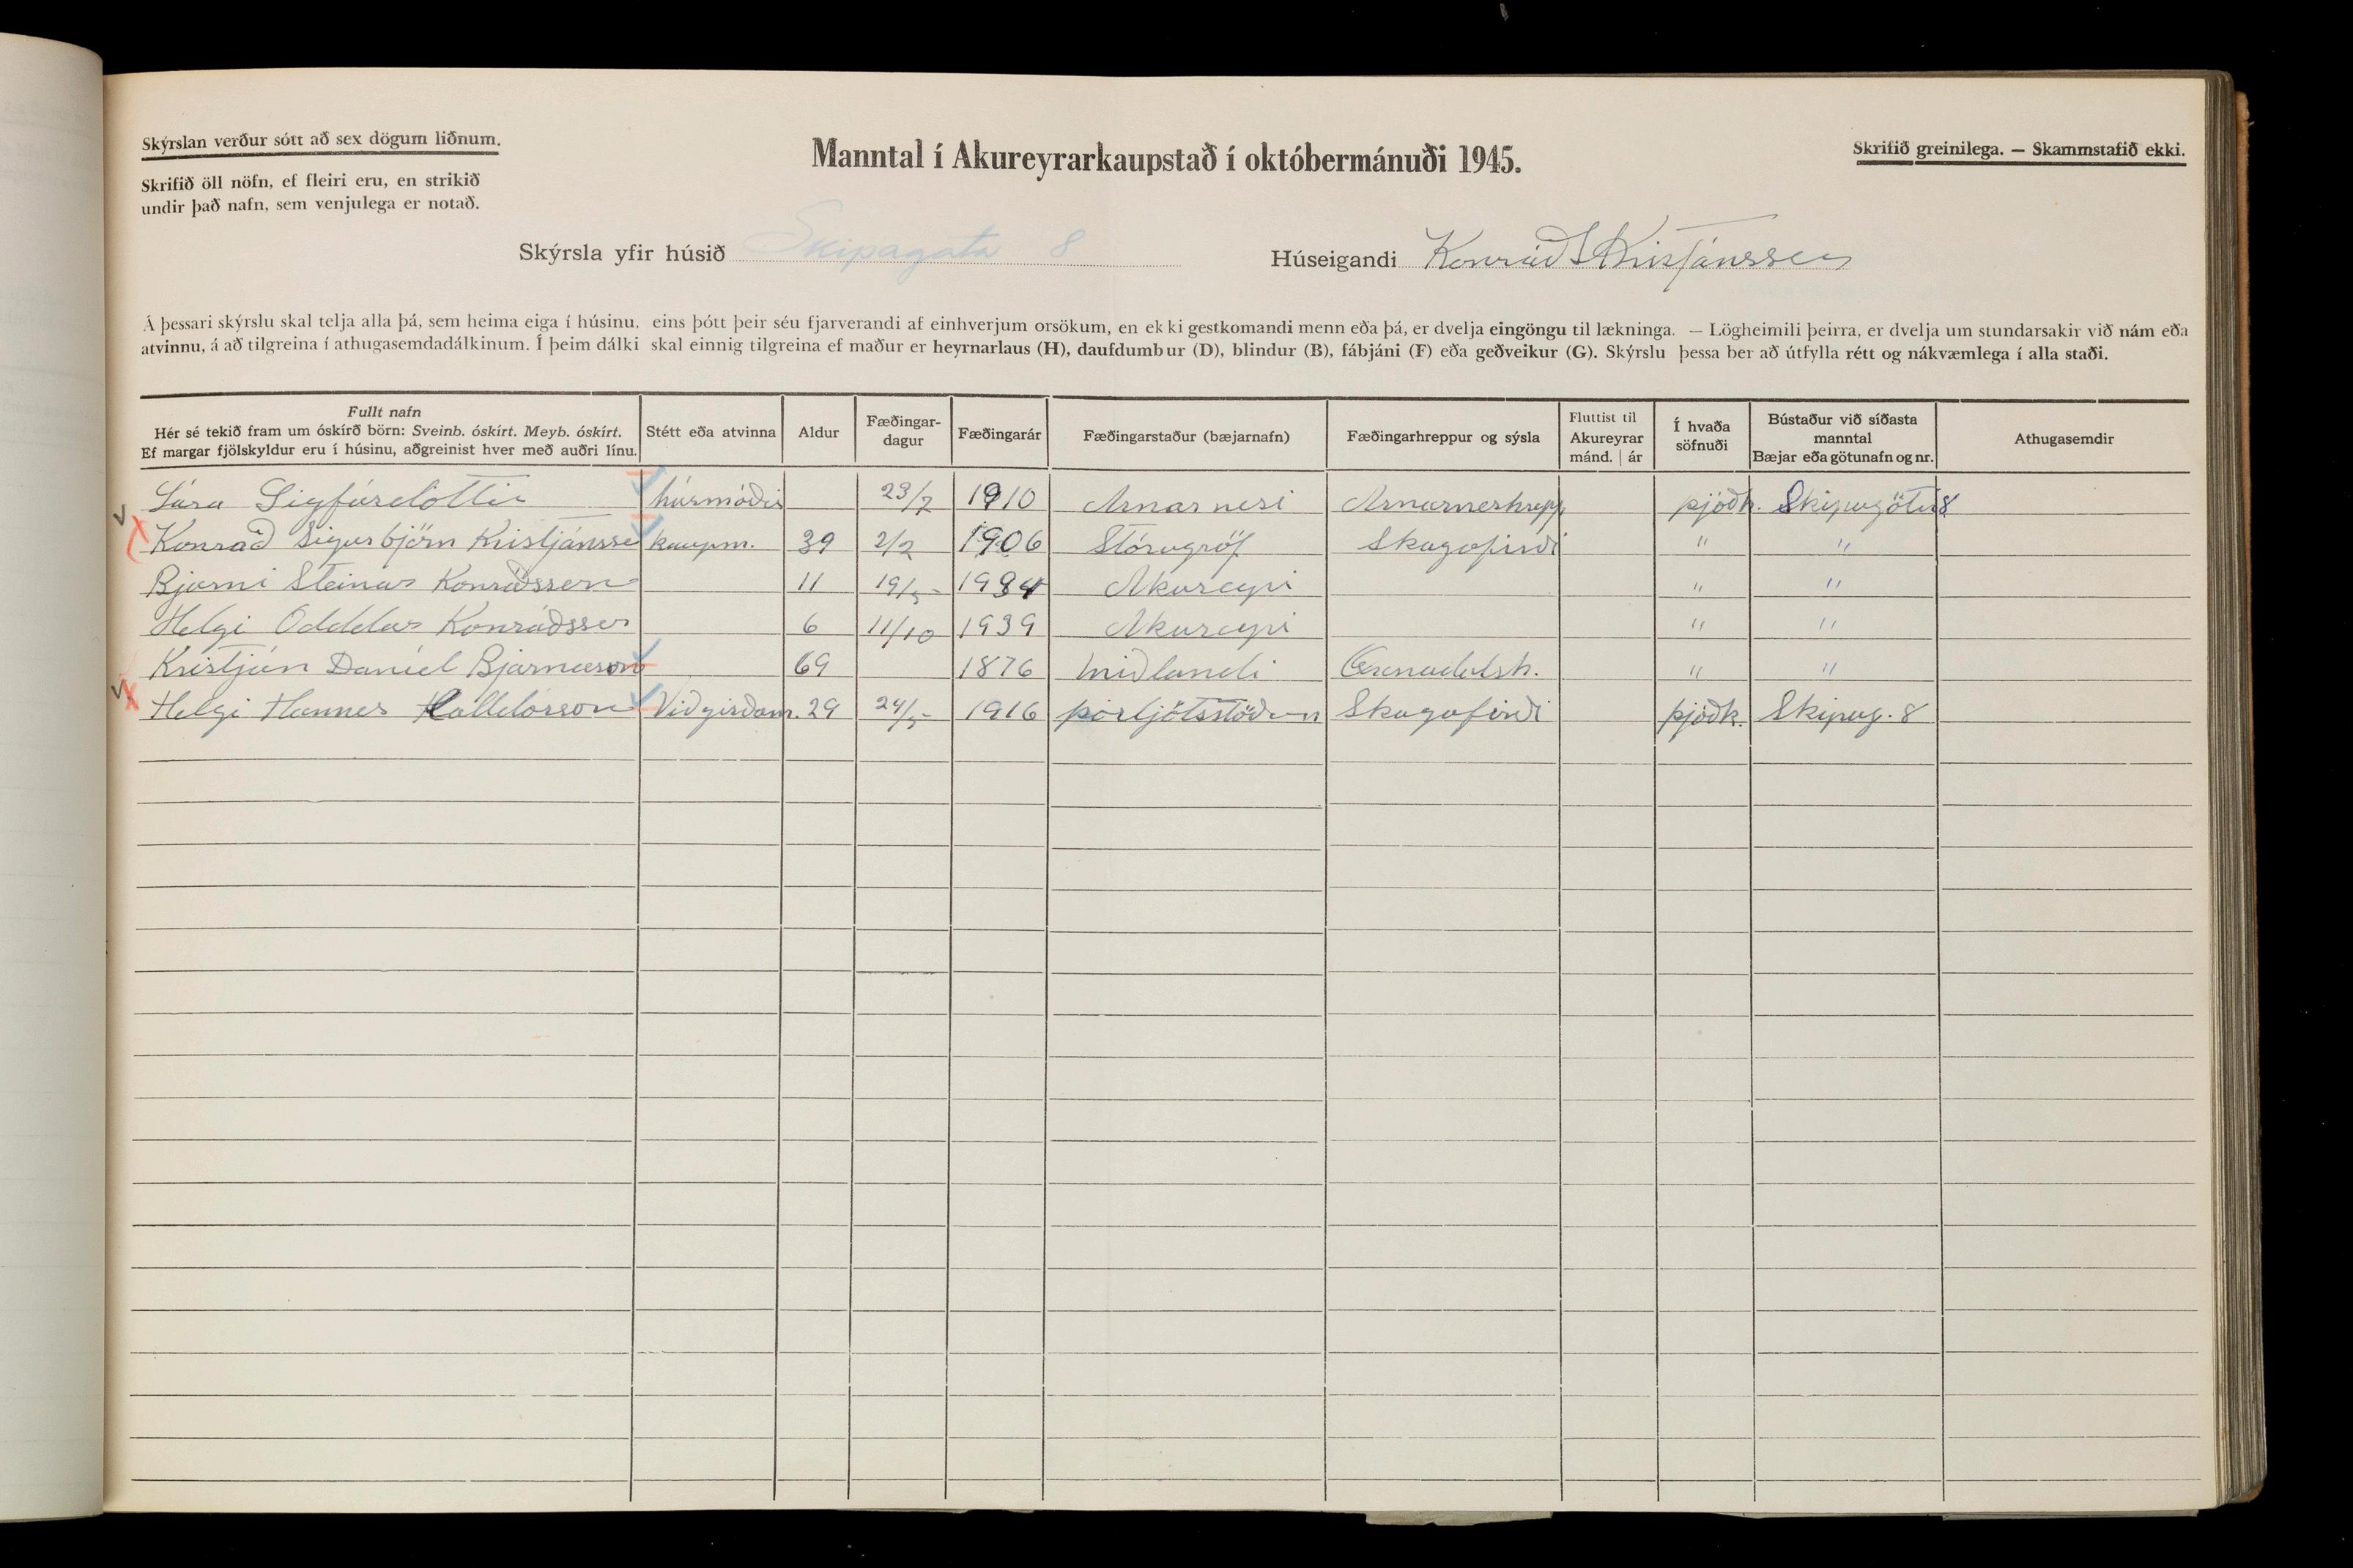 Skýrslan verður sótt að sex dögum liðnum.
Skrifið öll nöfn, ef fleiri eru, en strikið
undir það nafn, sem venjulega er notað.
Manntal í Akureyrarkaupstað í októbermánuði 1945.
Skrifið greinilega. — Skammstafið ekki.
Skýrsla yfir húsið Skipagata 8 Húseigandi Konráð S Kristjánsson
Á þessari skýrslu skal telja alla þá, sem heima eiga í húsinu, eins þótt þeir séu fjarverandi af einhverjum orsökum, en ekki gestkomandi menn eða þá, er dvelja eingöngu til lækninga. — Lögheimili þeirra, er dvelja um stundarsakir við nám eða
atvinnu, á að tilgreina í athugasemdadálkinum. Í þeim dálki skal einnig tilgreina ef maður er heyrnarlaus (H), daufdumbur (D), blindur (B), fábjáni (F) eða geðveikur (G). Skýrslu þessa ber að útfylla rétt og nákvæmlega í alla staði.
Fullt nafn
Hér sé tekið fram um óskírð börn: Sveinb. óskírt. Meyb. óskírt.
Ef margar fjölskyldur eru í húsinu, aðgreinist hver með auðri línu.
Stétt eða atvinna
Aldur
Fæðingar-
dagur
Fæðingarár
Fæðingarstaður (bæjarnafn)
Fæðingarhreppur og sýsla
Fluttist til
Akureyrar
mánd. | ár
Í hvaða
söfnuði
Bústaður við síðasta
manntal
Bæjar eða götunafn og nr.
Athugasemdir
Lára Sigfúsdóttir húsmóðir 23/7 1910 Arnarnesi Arnarneshrepp þjóðk. Skipagötu 8
Konráð Sigurbjörn Kristjánsso kaupm. 39 2/2 1906 Stórugröf Skagafirði " "
Bjarni Steinar Konráðsson 11 19/5 1934 Akureyri " "
Helgi Oddelar Konráðsson 6 11/10 1939 Akureyri " "
Kristján Daníel Bjarnason 69 1876 Miðlandi Öxnadalsh. " "
Helgi Hannes Halldórsson Viðgirðam. 29 24/5 1916 Þorljótsstöðum Skagafirði þjóðk. Skipag. 8